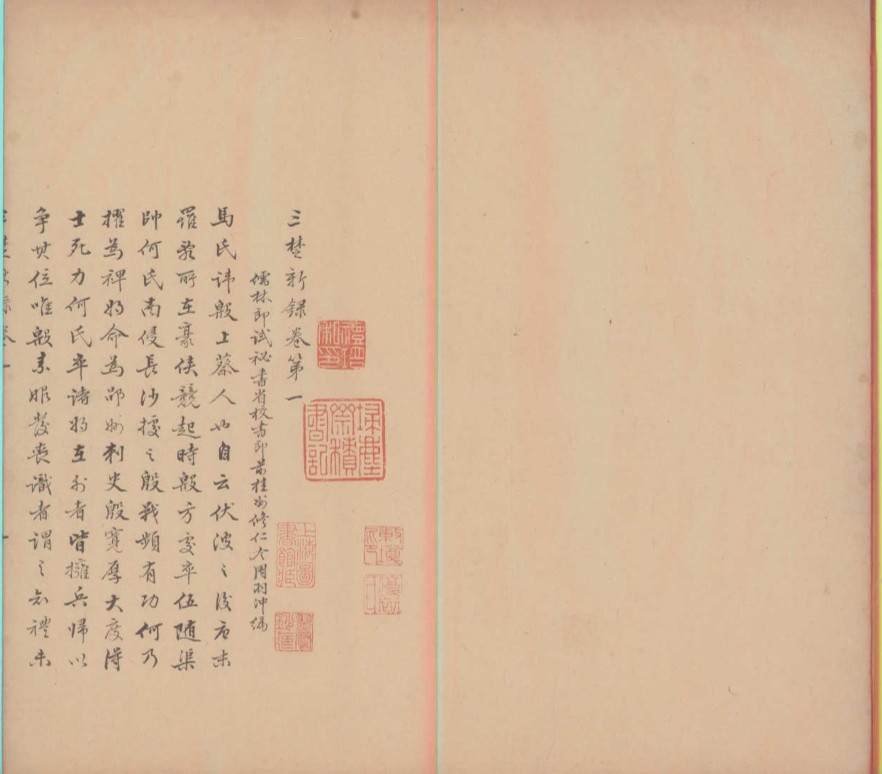 三楚新錄卷第一
儒林郎試秘書省校書郎前桂州修仁令周羽沖編
馬氏諱殷上蔡人也自云伏波之後唐末
羅於所在豪俠競起時殷方處卒伍隨渠
帥何氏南侵長沙據之殷戰頻有功何乃
擢為裨將命為邵州刺史殷寬厚大度得
士死力何氏卒諸將在外者皆擁兵歸以
爭其位唯殷素服發喪識者謂之知禮未
掃塵
齋積
書記